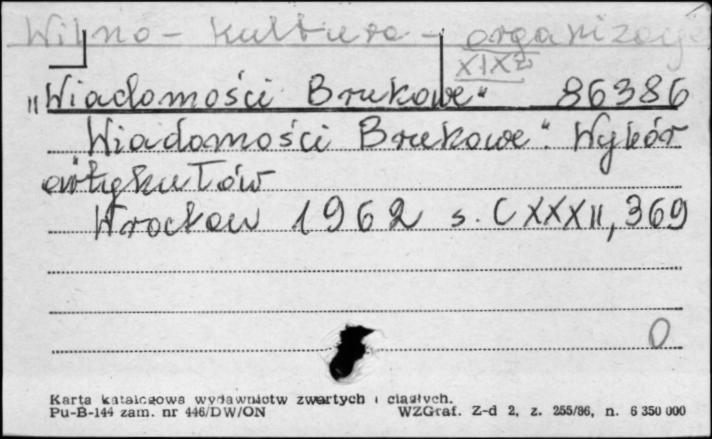 Wilno - kultura - organizacje
XIX w
"Wiadomości Brukowe" 86386
"Wiadomości Brukowe". Wybór
artykułów
Wrocław 1962 s. CXXXII, 369
0
Karta katalogowa wydawnictw zwartych i ciągłych.
Pu-B-144 zam. nr 446/DW/ON WZGraf. Z-d 2, z. 255/86, n. 6 350 000